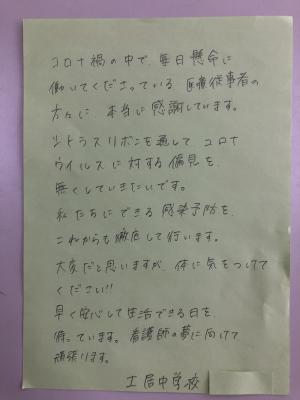 コロナ禍の中で、毎日懸命に
働いてくださっている 医療従事者の
方々に、本当に感謝しています。
シトラスリボンを通して コロナ
ウイルスに対する偏見を、
無くしていきたいです。
私たちにできる感染予防を、
これからも徹底して行います。
大変だと思いますが、体に気をつけて
ください!!
早く安心して生活できる日を、
待っています。看護師の夢に向けて
頑張ります。
土居中学校